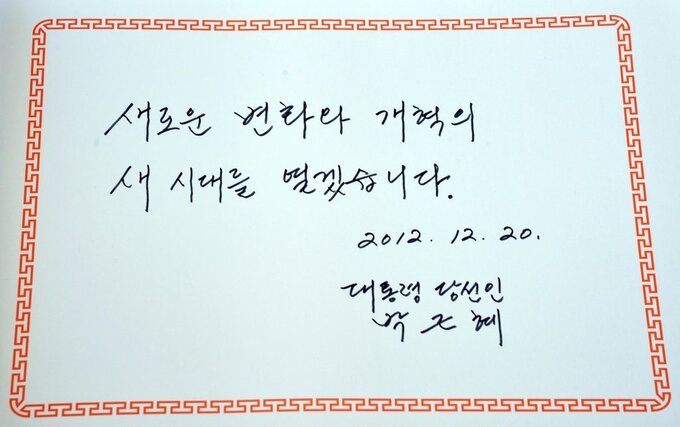 새로운 변화와 개혁의
새 시대를 열겠습니다.
2012. 12. 20.
대통령 당선인
박근혜